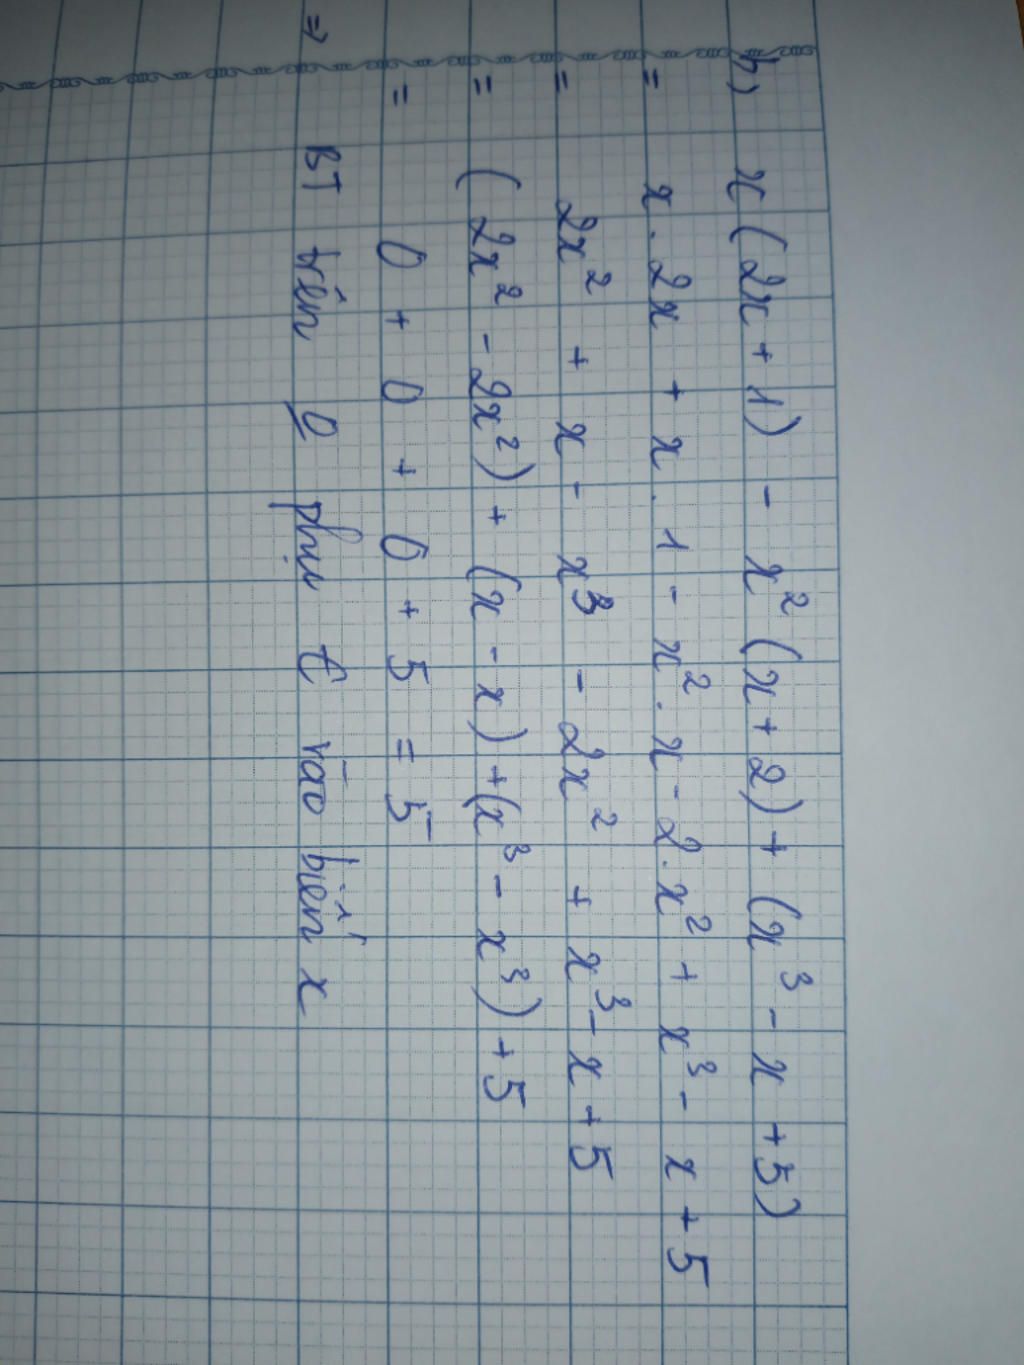 b) x(2x + 1) - x² (x + 2) + (x³ - x + 5)
= x . 2x + x . 1 - x² . x - 2 . x² + x³ - x + 5
= 2x² + x - x³ - 2x² + x³ - x + 5
= (2x² - 2x²) + (x - x) + (x³ - x³) + 5
= 0 + 0 + 0 + 5 = 5
=> BT trên 0 phụ t vào biến x